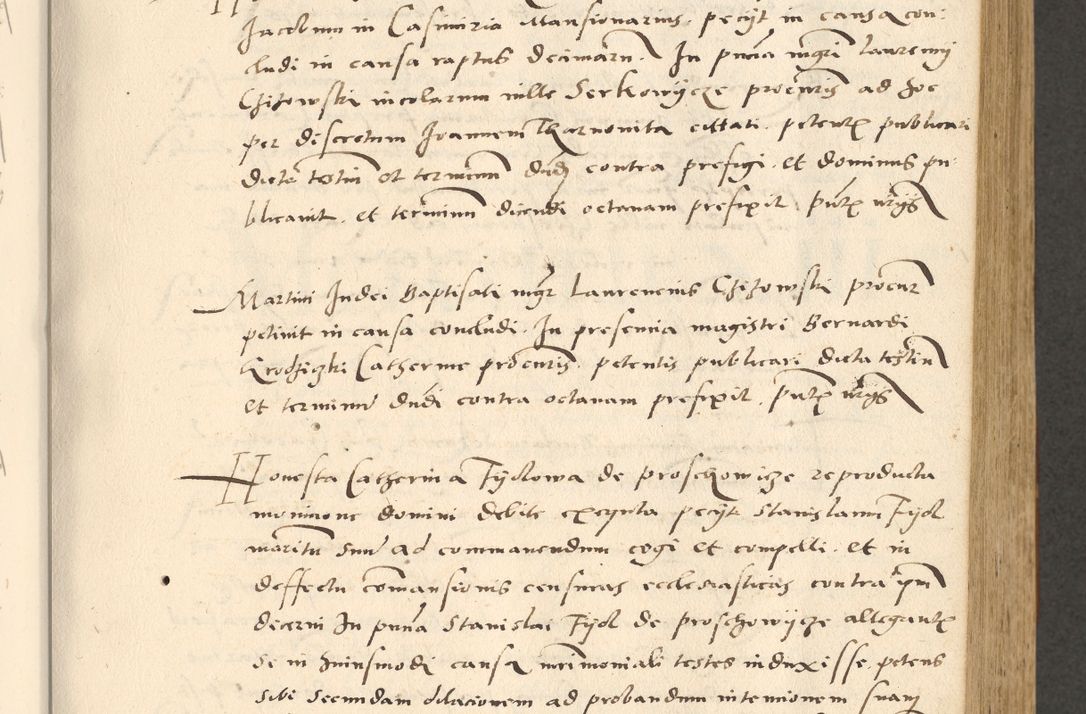 Jacobum in Casimiria Mansionarius, pecijt in causa con:
cludi in causa raptus decimarum. In pntia mgri Laurencij
Chizowski incolarum ville Serkowijcze procuris ad hoc
per discretum Joannem Tharnovita cittati, petentis publicari
dicta testium et terminum dicendi contra prefigi. et dominus pu:
blicavit, et terminum dicendi octavam prefixit, pntibus
Martini Judei Baptisati mgr Laurencius Chizowski procur
petivit in causa concludi. In presencia magistri Bernardi
Catherine procuris, petentis publicari dicta testium
et terminum dicendi contra octavam prefixit, pntibus
Honesta Catherina Fijolowa de Proschowicze reproducta
monicione domini debite exequta pecijt Stanislaum Fijol
maritum suum ad commanendum cogi et compelli. et in
deffectu commansionis censuras ecclesiasticas contra ipm
decerni In pntia Stanislai Fijol de Proschowijcze allegantis
se in huiusmodi causa mrimoniali testes induxisse, petens
sibi secundam dilacionem ad probandum intencionem suam